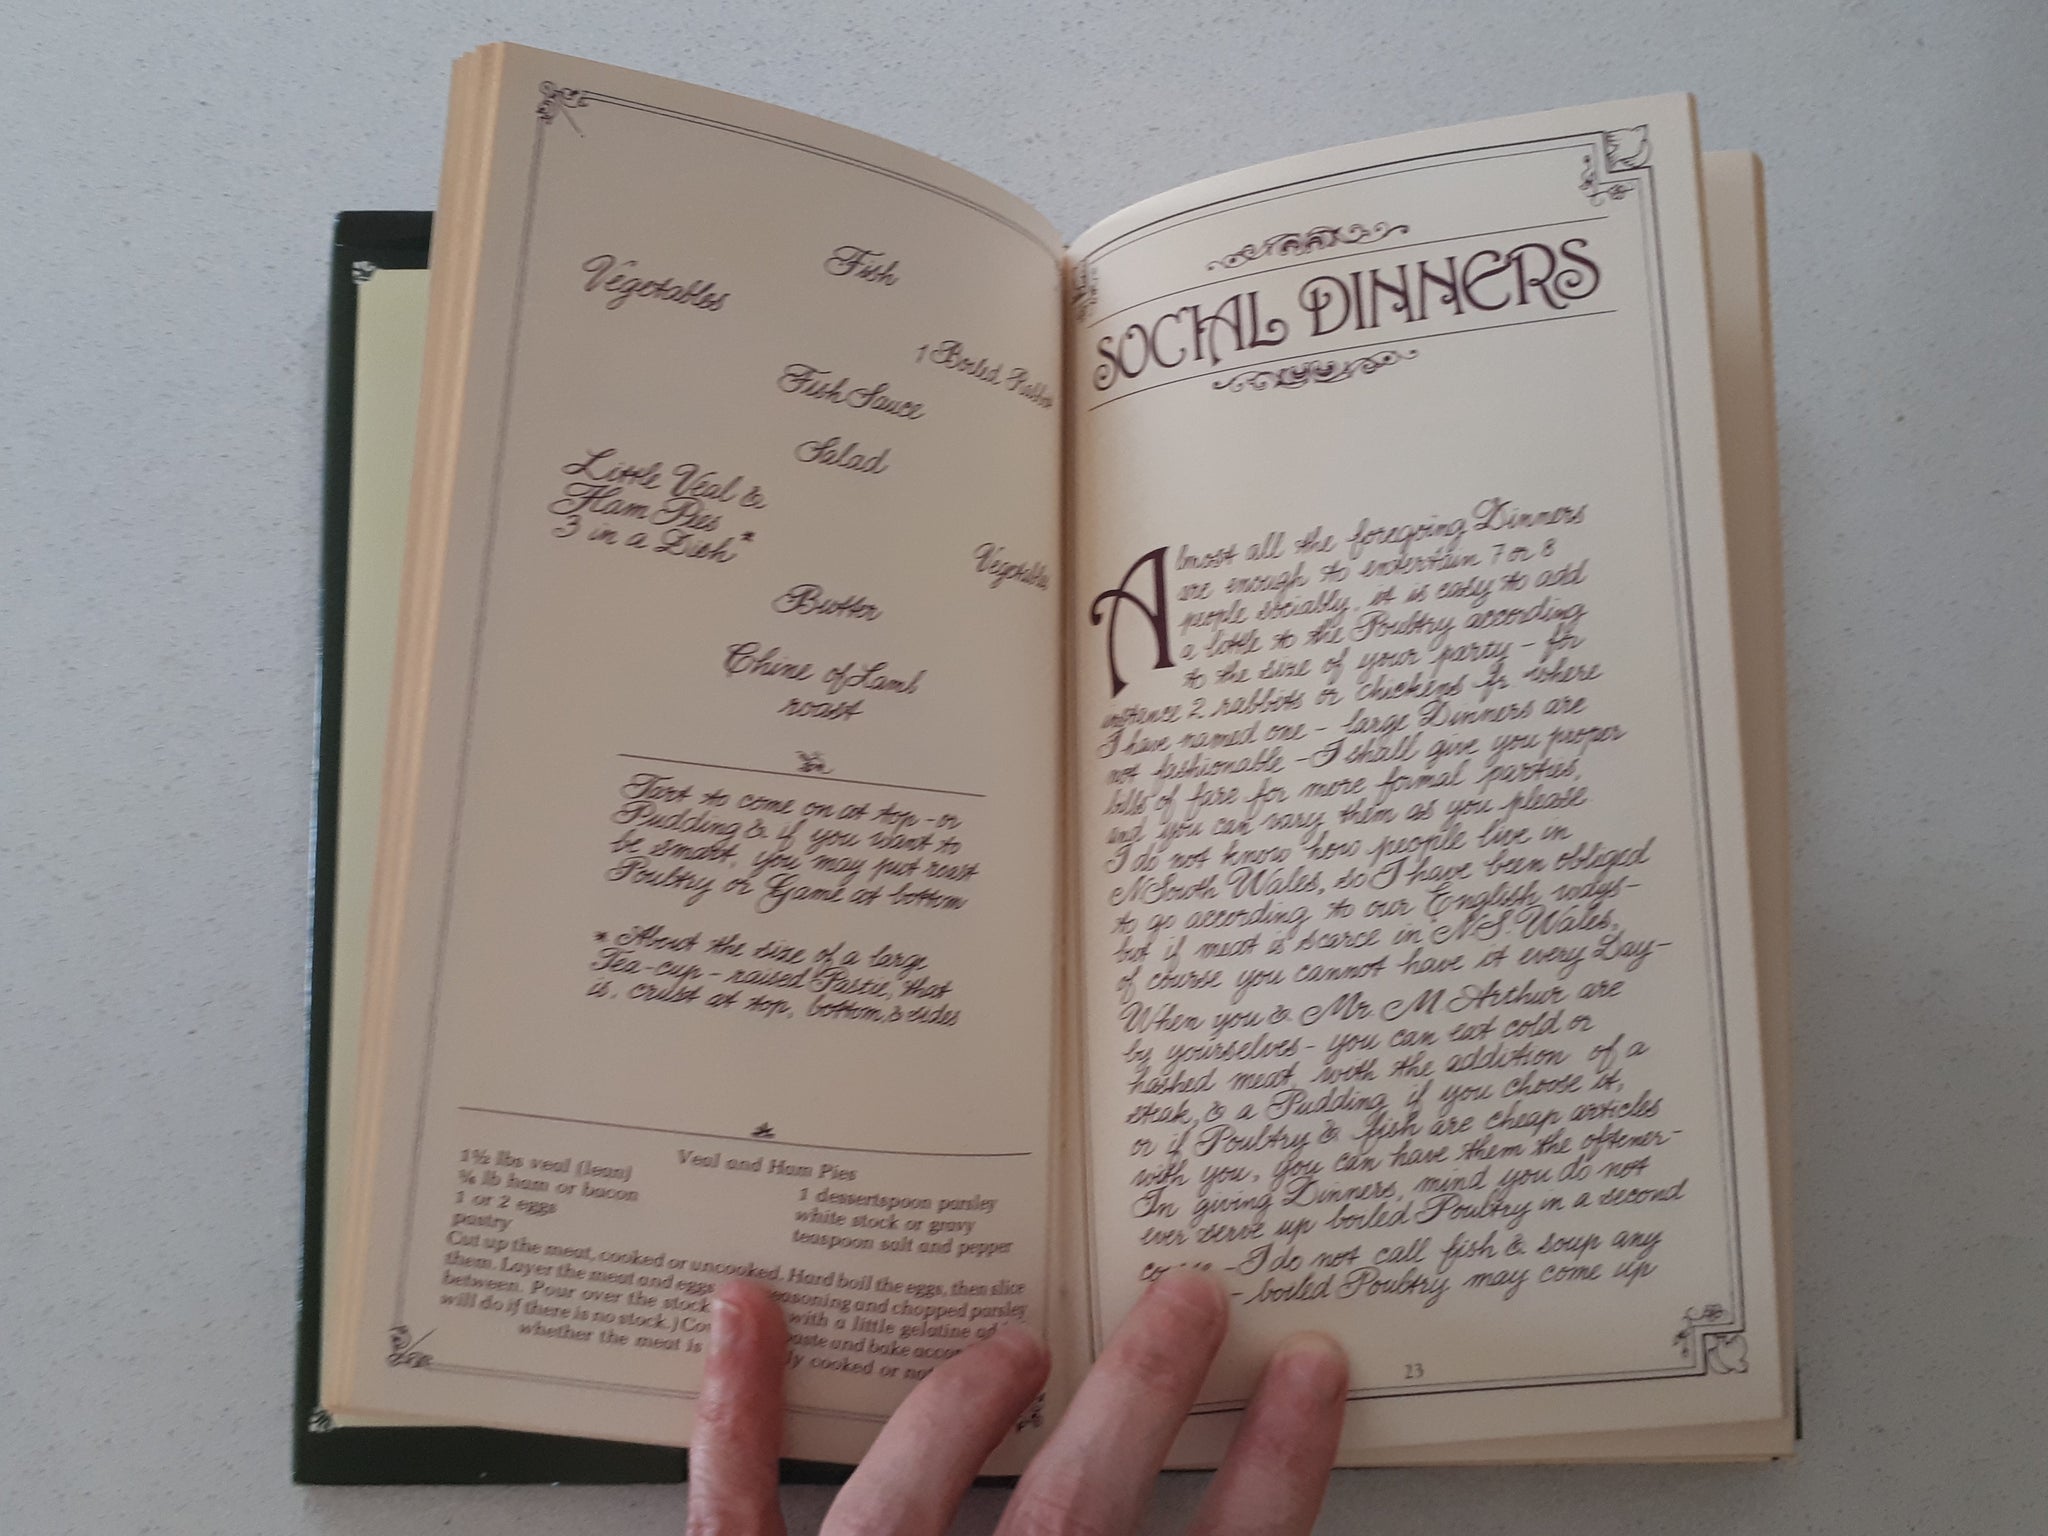 Fish
Vegetables
1 Boiled
Fish Sauce
Salad
Little Veal &
Ham Pies
3 in a Dish*
Vegetables
Butter
Chine of Lamb
roast
Tart to come on at top - or
Pudding & if you want to
be smart, you may put roast
Poultry or Game at bottom
* About the size of a large
Tea-cup - raised Pastie, that
is, crust at top, bottom, & sides
Veal and Ham Pies
1½ lbs veal (lean)
¾ lb ham or bacon
1 or 2 eggs
pastry
1 dessertspoon parsley
white stock or gravy
teaspoon salt and pepper
Cut up the meat, cooked or uncooked. Hard boil the eggs, then slice
them. Layer the meat and eggs seasoning and chopped parsley
between. Pour over the stock with a little gelatine
will do if there is no stock.) paste and bake
whether the meat is cooked or not
SOCIAL DINNERS
Almost all the foregoing Dinners
are enough to entertain 7 or 8
people sociably, it is easy to add
a little to the Poultry according
to the size of your party - for
instance 2 rabbits or chickens fr. where
I have named one - large Dinners are
not fashionable - I shall give you proper
bills of fare for more formal parties,
and you can vary them as you please
I do not know how people live in
NSouth Wales, so I have been obliged
to go according to our English ways -
but if meat is scarce in N.S. Wales,
of course you cannot have it every Day -
When you & Mr. M. Arthur are
by yourselves - you can eat cold or
hashed meat, with the addition of a
steak, & a Pudding if you choose it,
or if Poultry & fish are cheap articles
with you, you can have them the oftener -
In giving Dinners, mind you do not
ever serve up boiled Poultry in a second
- I do not call fish & soup any
- boiled Poultry may come up
23